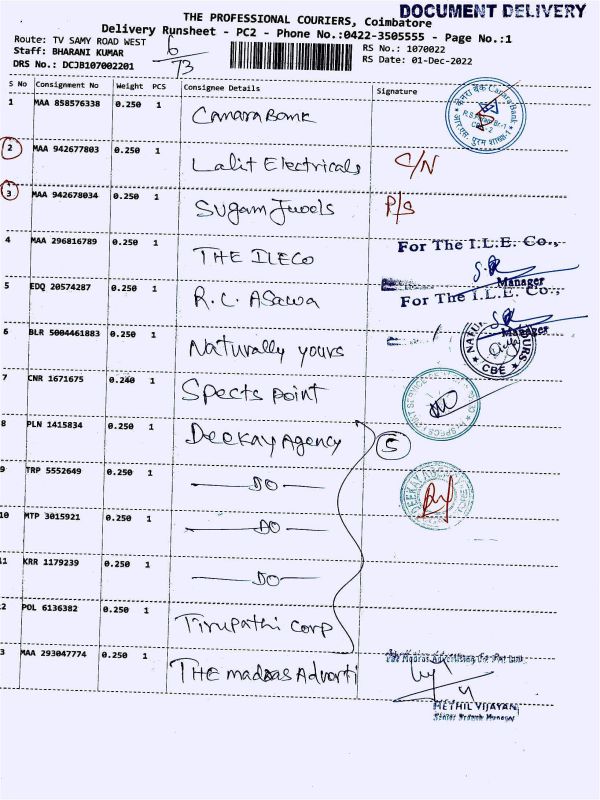 DOCUMENT DELIVERY
THE PROFESSIONAL COURIERS, Coimbatore
Delivery Runsheet - PC2 - Phone No.:0422-3505555 - Page No.:1
Route: TV SAMY ROAD WEST 6/73 RS No.: 1070022
Staff: BHARANI KUMAR RS Date: 01-Dec-2022
DRS No.: DCJB107002201
S No Consignment No Weight PCS Consignee Details Signature
1 MAA 858576338 0.250 1 Canara Bank
Canara Bank
2 MAA 942677803 0.250 1 Lalit Electricals C/N
3 MAA 942678034 0.250 1 Sugam Juwels P/S
4 MAA 296816789 0.250 1 THE ILECO
For The I.L.E. Co.,
Manager
5 EDQ 20574287 0.250 1 R.C. Asawa
For The I.L.E. Co.,
Manager
6 BLR 5004461883 0.250 1 Naturally yours
CBE
7 CNR 1671675 0.240 1 Spects point
8 PLN 1415834 0.250 1 Deekay Agency 5
9 TRP 5552649 0.250 1 DO
DEEKAY
10 MTP 3015921 0.250 1 DO
11 KRR 1179239 0.250 1 DO
2 POL 6136382 0.250 1 Tirupathi Corp
3 MAA 293047774 0.250 1 THE madras Adverti
The Madras Advertising Co Pvt Ltd
METHIL VIJAYAN
Senior Branch Manager